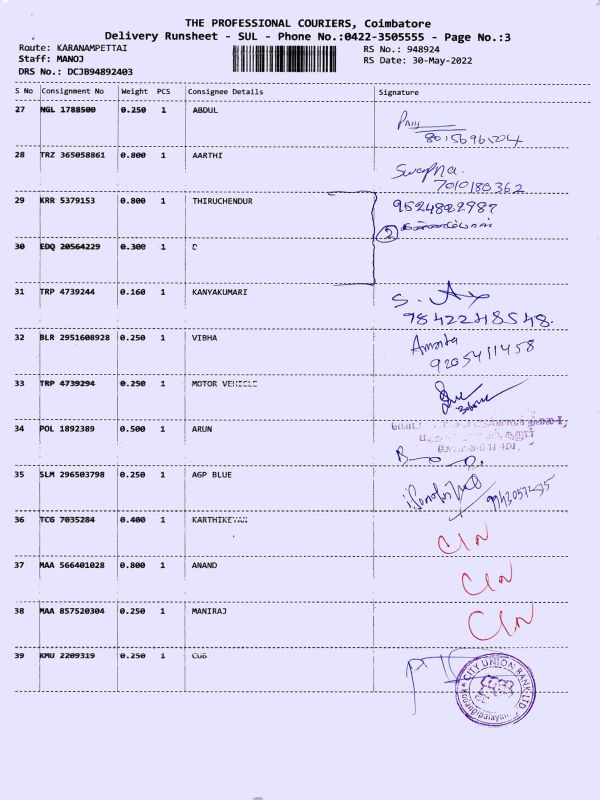 THE PROFESSIONAL COURIERS, Coimbatore
Delivery Runsheet - SUL - Phone No.:0422-3505555 - Page No.:3
Route: KARANAMPETTAI RS No.: 948924
Staff: MANOJ RS Date: 30-May-2022
DRS No.: DCJB94892403
S No Consignment No Weight PCS Consignee Details Signature
27 NGL 1788500 0.250 1 ABDUL
28 TRZ 365058861 0.800 1 AARTHI
Swapna.
7010180362
29 KRR 5379153 0.800 1 THIRUCHENDUR
2
30 EDQ 20564229 0.300 1 D
31 TRP 4739244 0.160 1 KANYAKUMARI
9842248548.
32 BLR 2951608928 0.250 1 VIBHA
9205411458
33 TRP 4739294 0.250 1 MOTOR VEHICLE
34 POL 1892389 0.500 1 ARUN
35 SLM 296503798 0.250 1 AGP BLUE
36 TCG 7035284 0.400 1 KARTHIKEYAN
37 MAA 566401028 0.800 1 ANAND
38 MAA 857520304 0.250 1 MANIRAJ
39 KMU 2209319 0.250 1 CUB
CITY UNION BANK LTD